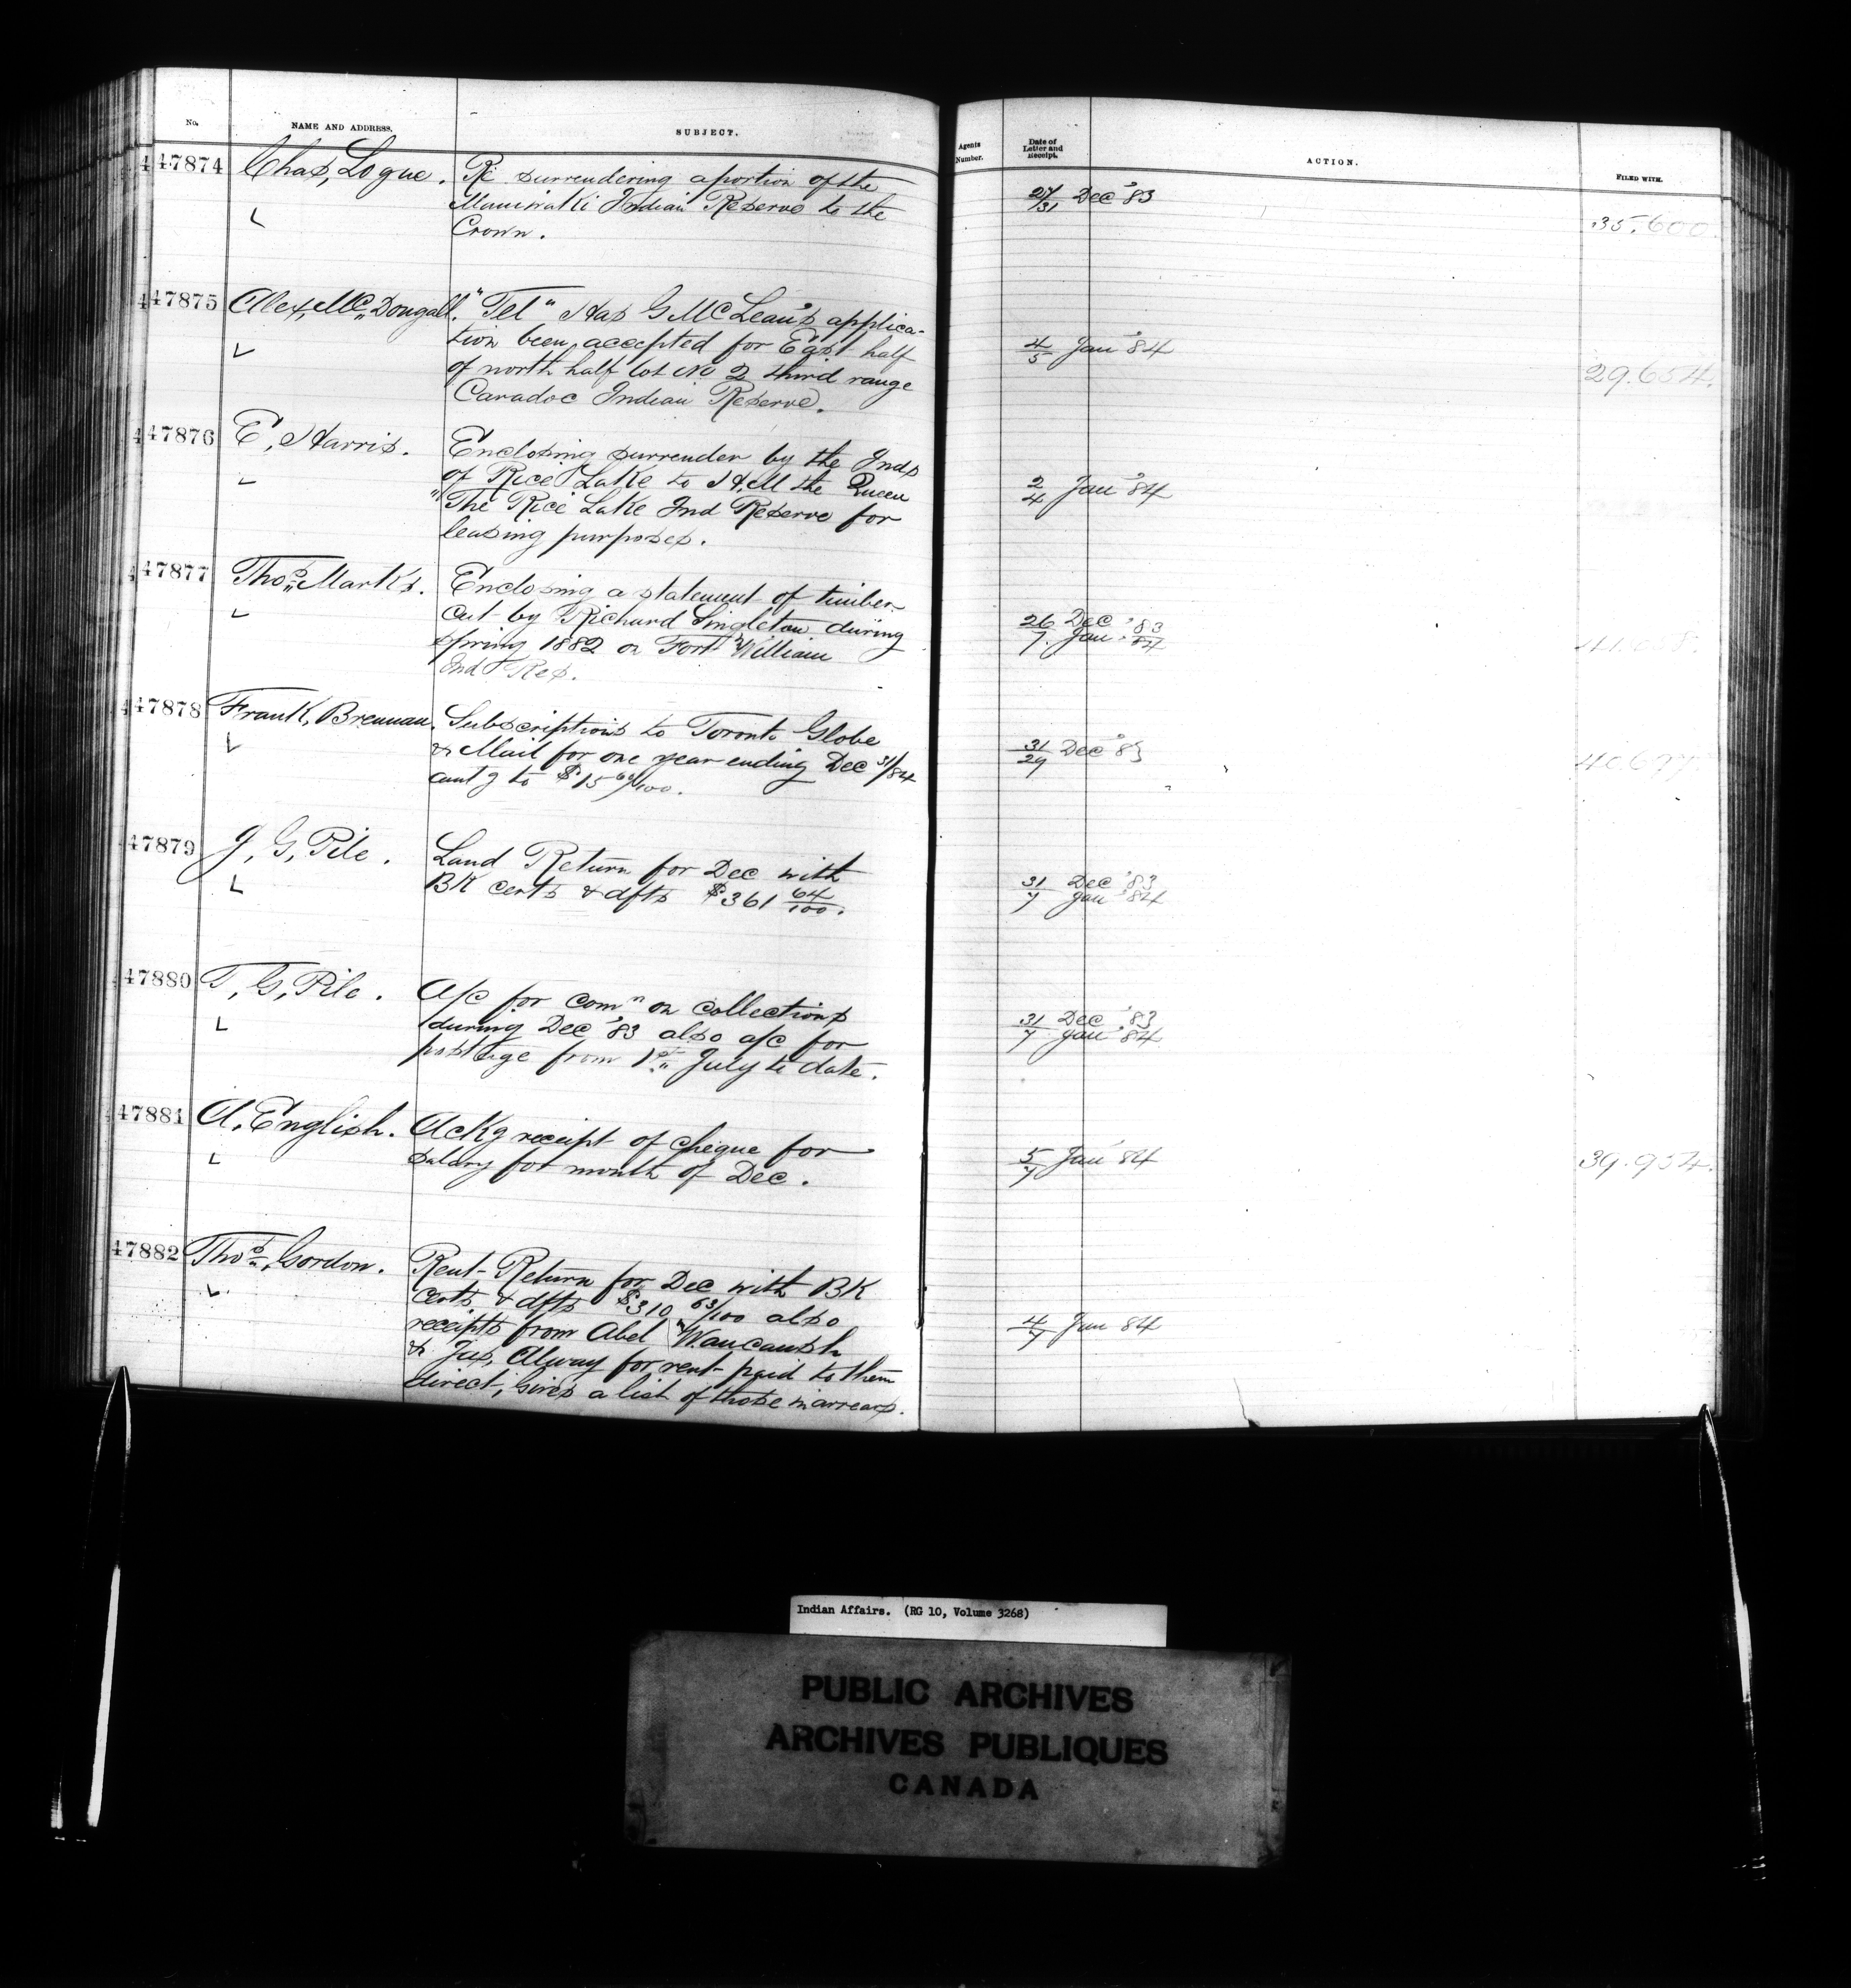 No. NAME AND ADDRESS. SUBJECT. Agents Number. Date of Letter and Receipt. ACTION. FILED WITH.
47874 Chas, Logue. Re surrendering a portion of the
Maniwaki Indian Reserve to the
Crown.
27/31 Dec '83
35.600.
47875 Alex, McDougall. "Tel" Has G McLean's applica-
tion been accepted for East half
of north half lot No 2 third range
Caradoc Indian Reserve.
4/5 Jan '84
29.654.
47876 E, Harris. Enclosing surrender by the Inds
of Rice Lake to H,M the Queen
"The Rice Lake Ind Reserve for
leasing purposes.
2/4 Jan '84
47877 Thos Marks. Enclosing a statement of timber
cut by Richard Singleton during
spring 1882 on Fort William
Ind Res.
26 Dec '83
7 Jan '84
47878 Frank, Brennan. Subscriptions to Toronto Globe
& Mail for one year ending Dec 31/84
amt g to $15 /100.
31/29 Dec '83
40.697
47879 J, G, Pile. Land Return for Dec with
BK certs & dfts $361 64/100.
31 Dec '83
7 Jan '84
47880 T, G, Pile. A/c for comn on collections
during Dec '83 also a/c for
postage from 1st July to date.
31 Dec '83
7 Jan '84
47881 A, English. Ackg receipt of cheque for
salary for month of Dec.
5/7 Jan '84
39.954.
47882 Thos, Gordon. Rent Return for Dec with BK
certs & dfts $310 63/100 also
receipts from Abel Waucaush
& Jas, Alway for rent paid to them
direct, Gives a list of those in arrears.
4/7 Jan 84
Indian Affairs. (RG 10, Volume 3268)
PUBLIC ARCHIVES
ARCHIVES PUBLIQUES
CANADA